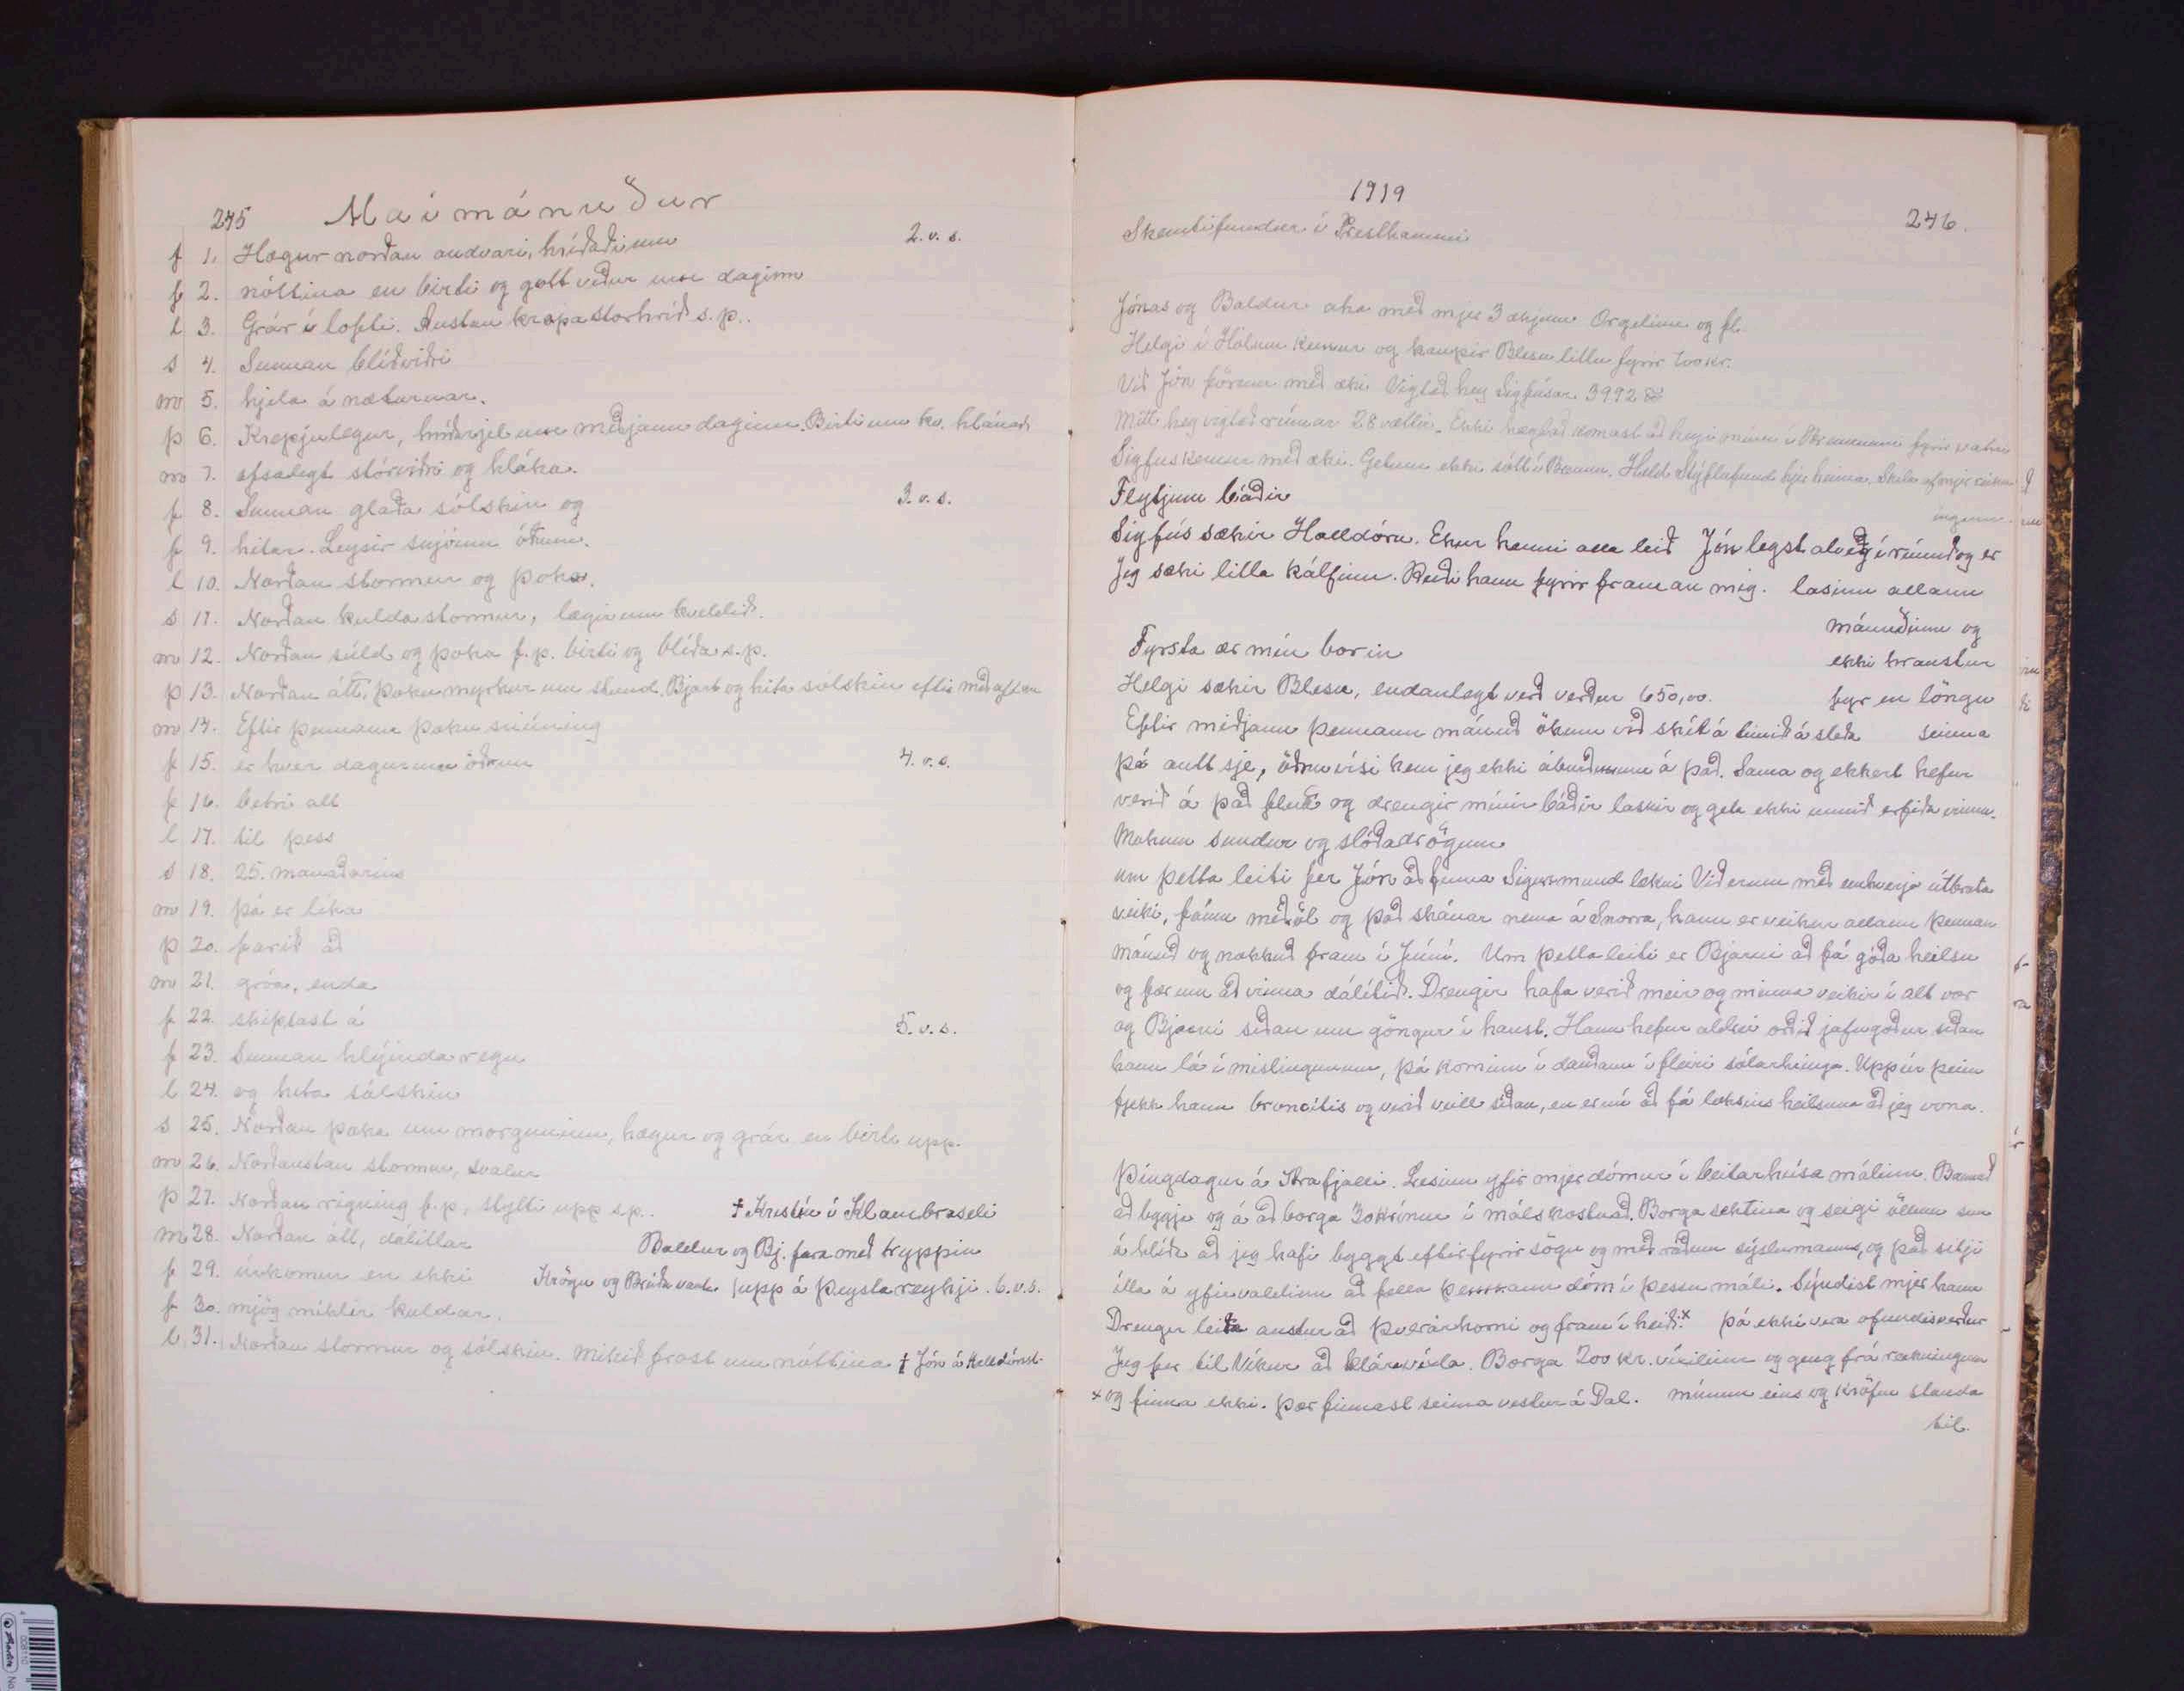 245 Maímánuður
f 1. Hægur norðan andvari, hríðaði um 2. v. s.
f 2. nóttina en birti og gott veður um daginn
l 3. Grár í lofti. Austan krapa stórhríð s. p..
s 4. Sunnan blíðviðri
m 5. hjela á næturnar.
þ 6. Krepjulegur, hríðarjel um miðjann daginn. Birti um kv. hlánaði
m 7. ofsalegt stórviðri og hláka.
f 8. Sunnan glaða sólskin og 3. v. s.
f 9. hitar. Leysir snjóinn óðum.
l 10. Norðan stormur og þoka.
s 11. Norðan kulda stormur, lægir um kveldið.
m 12. Norðan súld og þoka f. p. birti og blíða s. p.
þ 13. Norðan átt, þoku myrkur um stund. Bjart og hita sólskin eftir miðaftan
m 14. Eftir þennann þoku snúning
f 15. er hver dagurinn öðrum 4. v. s.
f 16. betri alt
l 17. til þess
s 18. 25. mánaðarins
m 19. þá er líka
þ 20. farið að
m 21. gróa, enda
f 22. skiptast á 5. v. s.
f 23. Sunnan hlýinda regn
l 24. og hita sólskin
s 25. Norðan þoka um morguninn, hægur og grár en birti upp.
m 26. Norðaustan stormur, svalur
þ 27. Norðan rigning f. p, stytti upp s. p.. † Kristín í Klambraseli
m 28. Norðan átt, dálitlar Baldur og Bj. fara með tryppin
f 29. úrkomur en ekki Krögu og Brúða vantar upp á Þeystareykji. 6. v. s.
f 30. mjög miklir kuldar.
l 31. Norðan stormur og sólskin. Mikið frost um nóttina † Jón á Halldórsst.
1919
Skemtifundur í Presthvammi 246.
Jónas og Baldur aka með mjer 3 ækjum Orgelinu og fl.
Helgi í Hólum kemur og kaupir Blesu litlu fyrir 600 kr.
Við Jón förum með æki. Vigtað hey Sigfúsar 3992 ℔
Mitt hey vigtað rúmar 28 vættir. Ekki hægt að komast að heyi mínu í Brunnum fyrir vatni
Sigfús kemur með æki. Getum ekki sótt í Brunn. Held Stýflufund hjer heima. Skila af mjer
ingum.
Flytjum báðir
Sigfús sækir Halldóru. Ekur henni alla leið Jón legst alveg í rúmið og er
Jeg sæki litla kálfinn. Reiði hann fyrir framan mig. lasinn allann
mánuðinn og
Fyrsta ær mín borin ekki hraustur
Helgi sækir Blesu, endanlegt verð verður 650,00. fyr en löngu
Eftir miðjann þennann mánuð ökum við skít á túnið á sleða seinna
þó autt sje, öðruvísi kem jeg ekki áburðinum á það. Sama og ekkert hefur
verið á það flutt og drengir mínir báðir lasnir og geta ekki unnið erfiða vinnu.
Mokum sundur og slóðadrögum
um þetta leiti fer Jón að finna Sigurmund lækni Við erum með einhverja útbrota
veiki, fáum meðöl og það skánar nema á Snorra, hann er veikur allann þennan
mánuð og nokkuð fram í Júní. Um þetta leiti er Bjarni að fá góða heilsu
og fær nú að vinna dálítið. Drengir hafa verið meir og minna veikir í alt vor
og Bjarni síðan um göngur í haust. Hann hefur aldrei orðið jafngóður síðan
hann lá í mislingunum, þá kominn í dauðann í fleiri sólarhringa. Uppúr þeim
fjekk hann broncitis og verið veill síðan, en er nú að fá loksins heilsuna að jeg vona.
Þingdagur á Hrafjalli. Lesinn yfir mjer dómur í beitarhúsa málinu. Bannað
að byggja og á að borga 30 krónur í málskostnað. Borga sektina og seigi öllum sem
á hlíða að jeg hafi byggt eftir fyrirsögn og með ráðum sýslumanns, og það sitji
illa á yfirvaldinu að fella þennann dóm í þesu máli. Sýndist mjer hann
Drengir leita austur að Þverárhorni og fram í heiði.ˣ þá ekki vera öfundisverður
Jeg fer til Víkur að klára víxla. Borga 200 kr. víxilinn og geng frá reikningum
× og finna ekki. Þær finnast seinna vestur á Dal. mínum eins og kröfur standa
til.